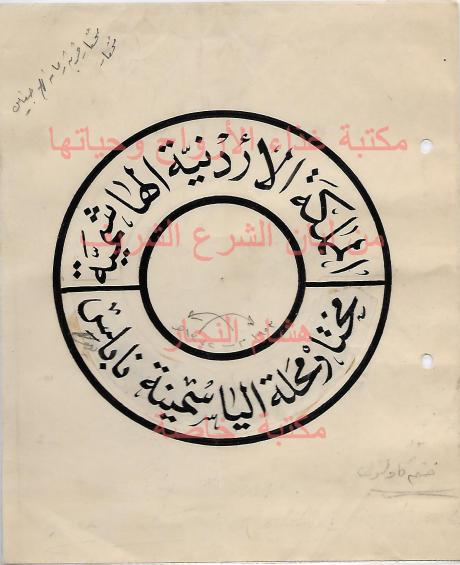 مكتبة غذاء الأرواح وحياتها
المملكة الأردنية الهاشمية
من لسان الشرع الشريف
هشام النجار
مختار محلة الياسمينة نابلس
مكتبة خاصة
ختم كاوتشوك